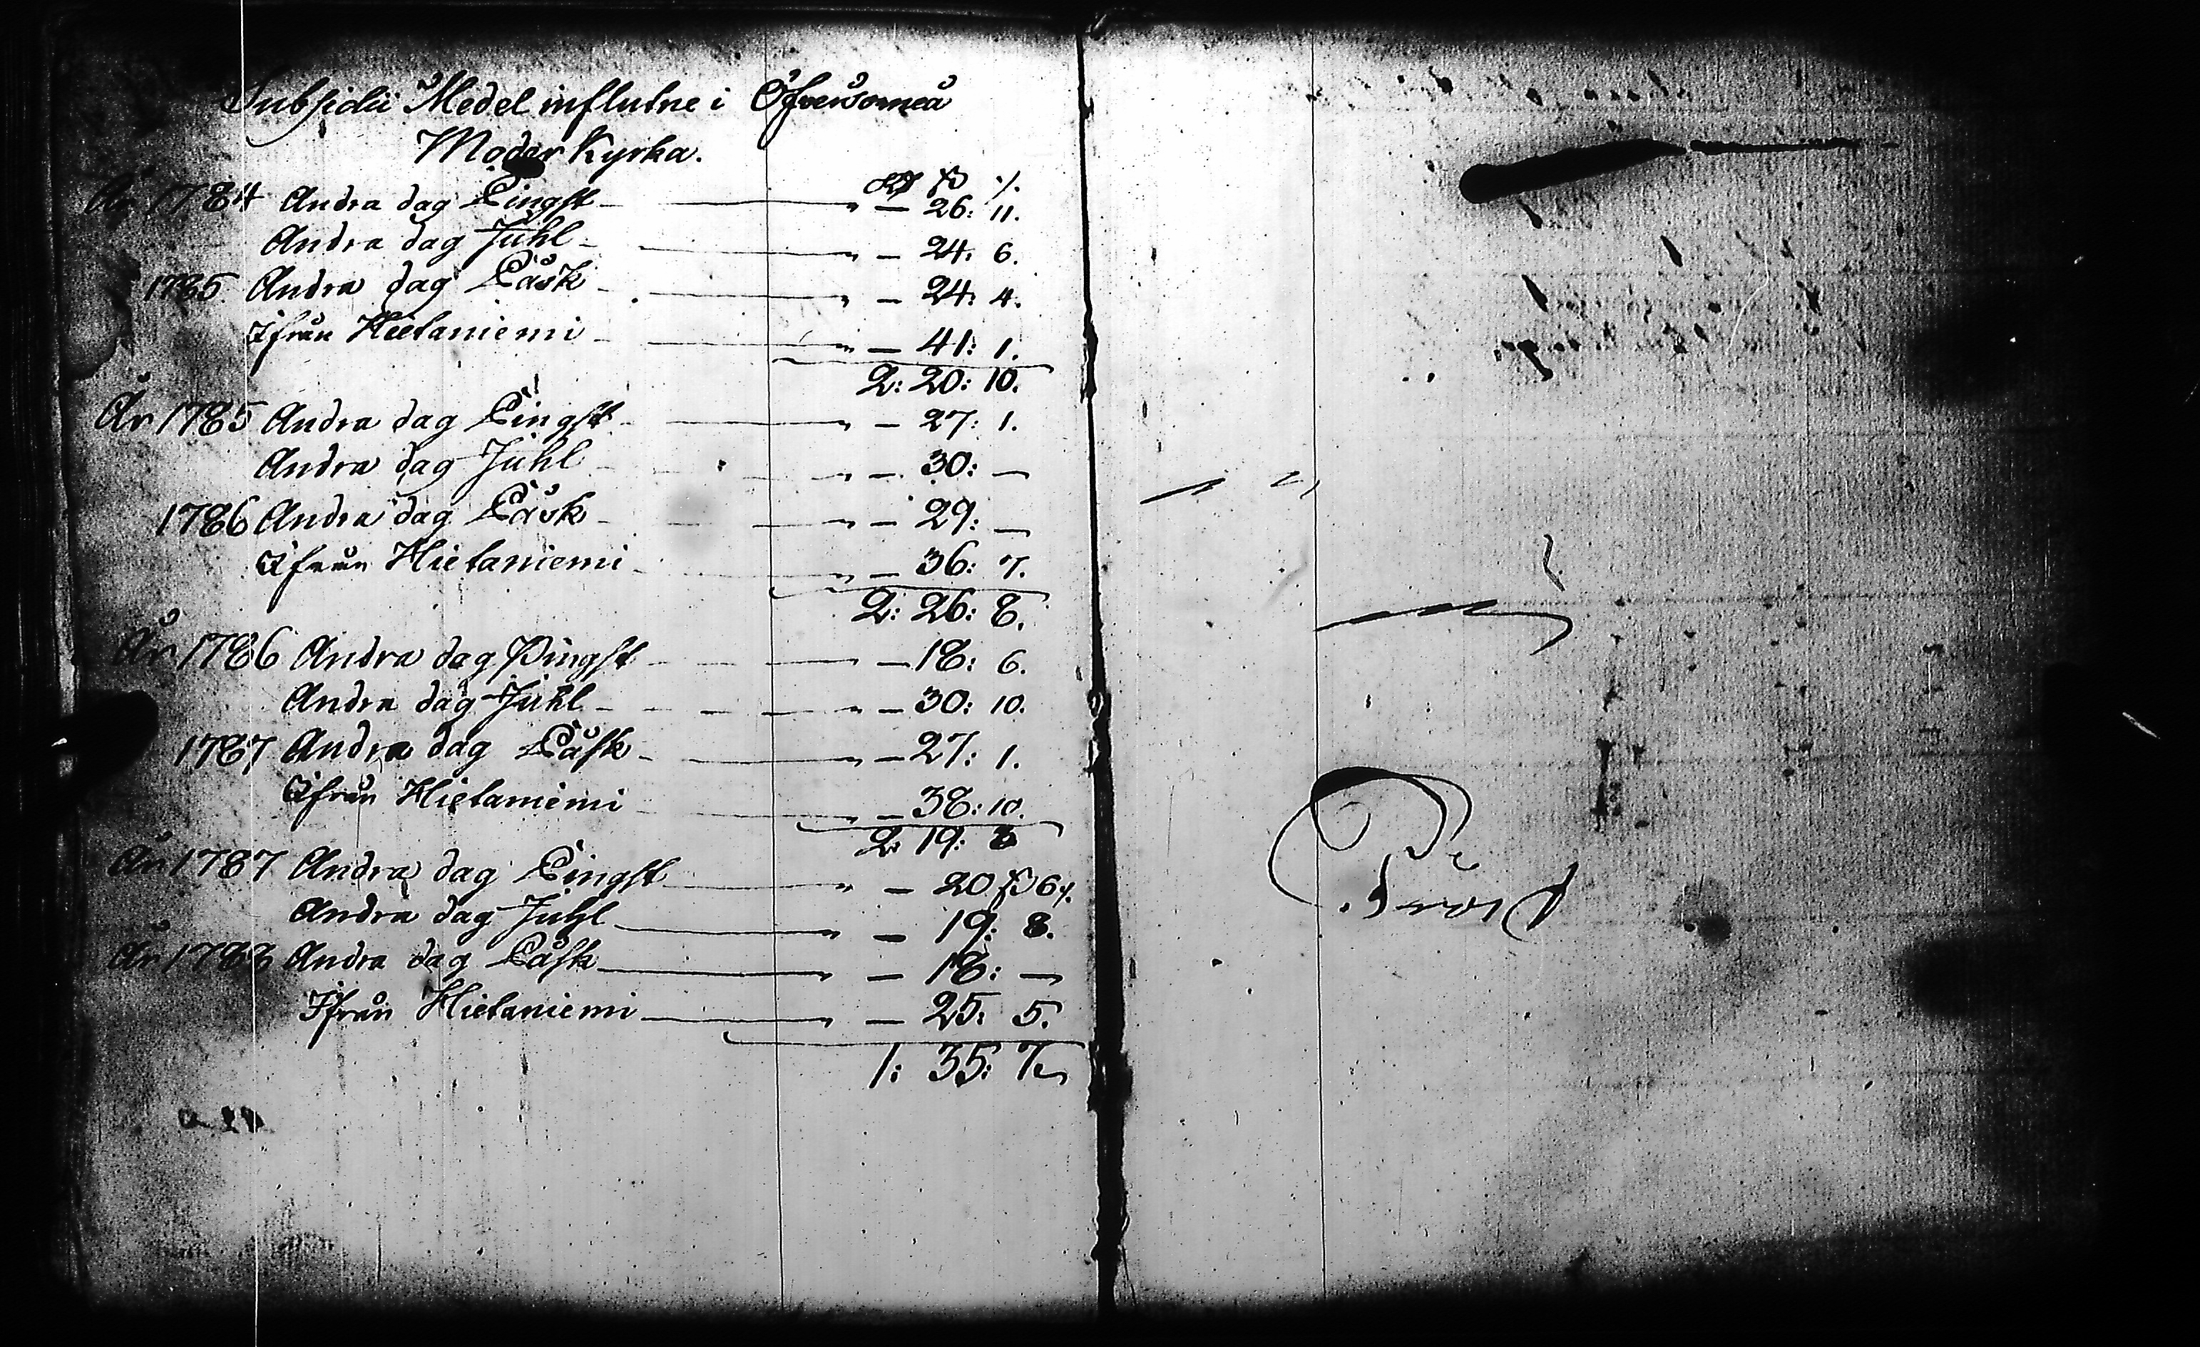 Subsidii Medel influtne i Öfvertorneå
Moder Kyrka.
Rd ß /.
År 1784 Andra dag Pingst — " — 26: 11.
Andra dag Juhl — " — 24: 6.
1785 Andra dag Påsk — " — 24: 4.
Ifrån Hietaniemi — " — 41: 1.
2: 20: 10.
År 1785 Andra dag Pingst — " — 27: 1.
Andra dag Juhl — " — 30: —
1786 Andra dag Påsk — " — 29: —
Ifrån Hietaniemi — " — 36: 7.
2: 26: 8.
År 1786 Andra dag Pingst — " — 18: 6.
Andra dag Juhl — " — 30: 10.
1787 Andra dag Påsk — " — 27: 1.
Ifrån Hietaniemi — " — 38: 10.
2: 19: 3
År 1787 Andra dag Pingst — " — 20 ß 6/.
Andra dag Juhl — " — 19: 8.
År 1788 Andra dag Påsk — " — 18: —
Ifrån Hietaniemi — " — 25: 5.
1: 35: 7.